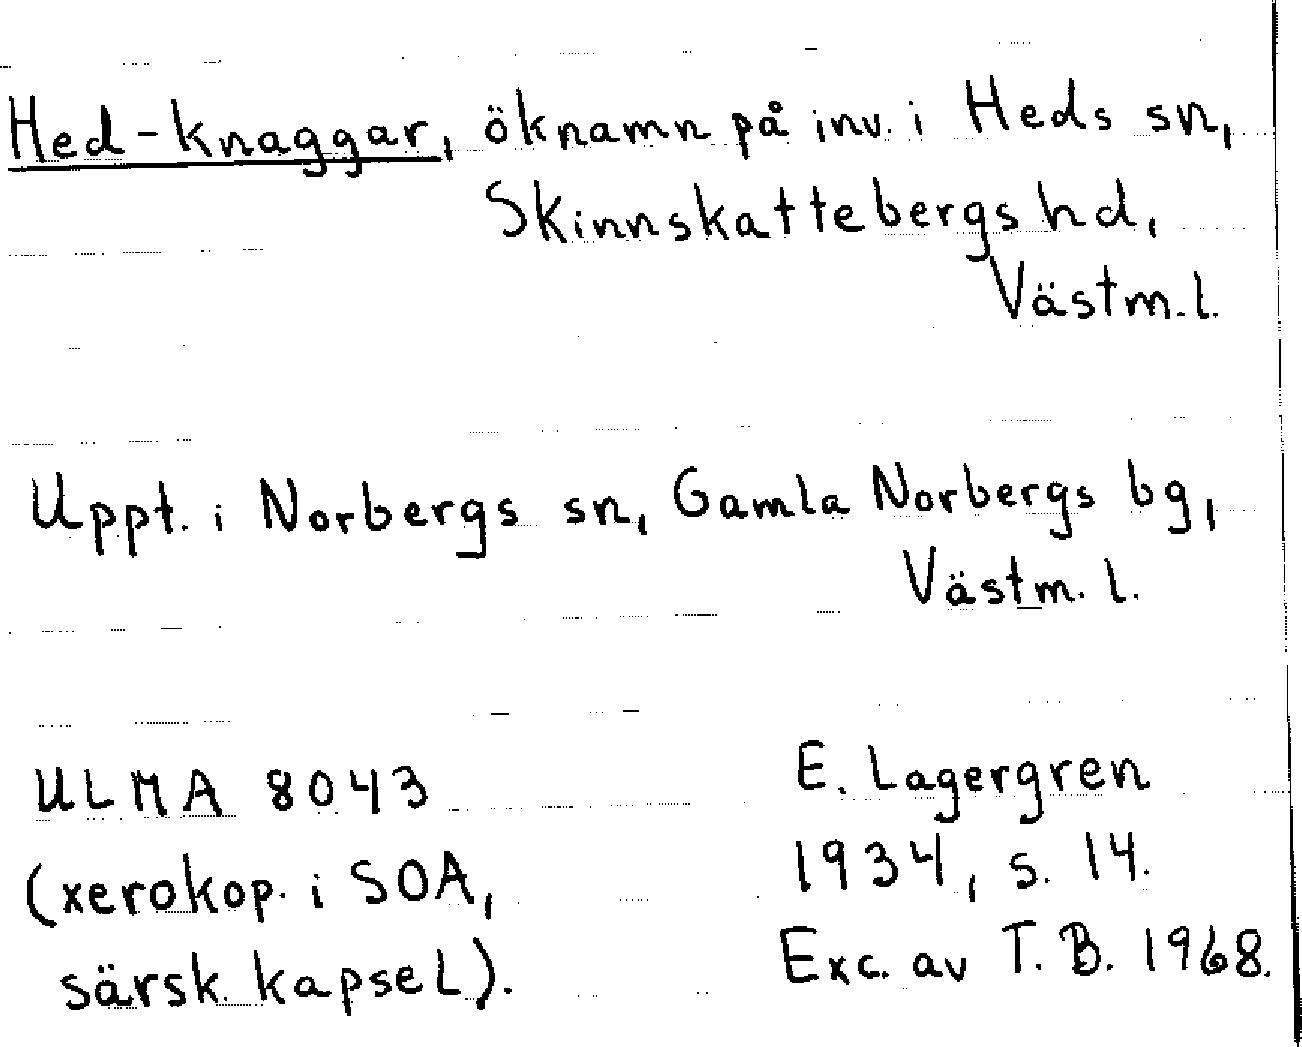 Hed-knaggar, öknamn på inv. i Heds sn,
Skinnskattebergs hd,
Västm. l.
Uppt. i Norbergs sn, Gamla Norbergs bg,
Västm. l.
ULMA 8043
(xerokop. i SOA,
särsk. kapsel).
E. Lagergren
1934, s. 14.
Exc. av T. B. 1968.